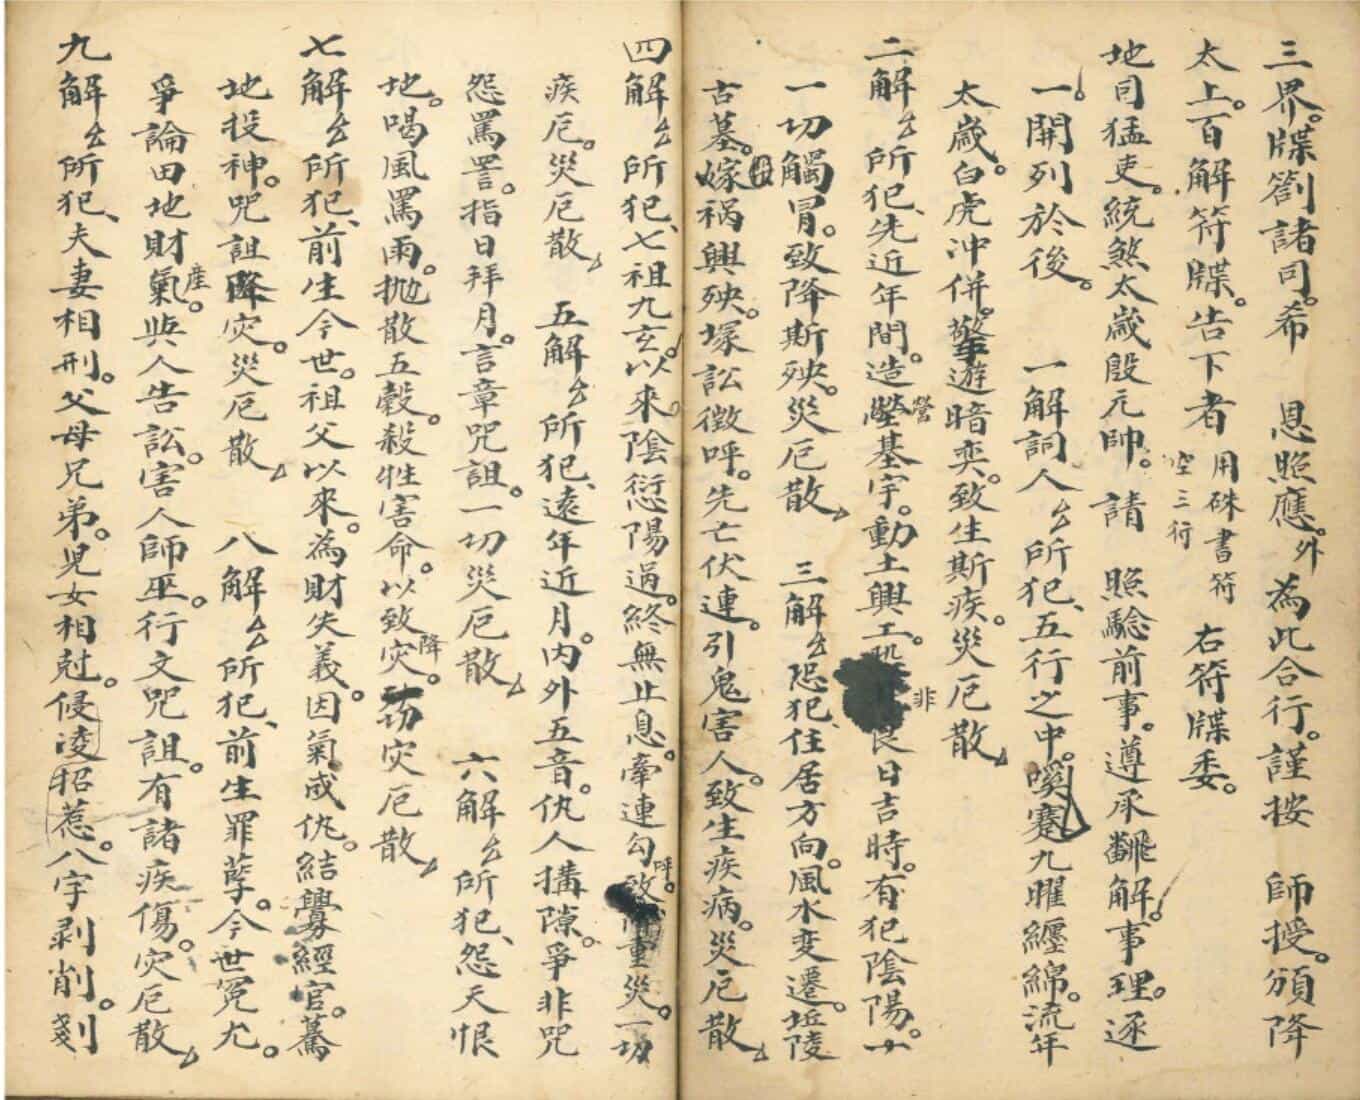 三界。牒劄諸司。希　恩照應。外為此合行。謹按　師授。頒降
太上。百解符牒。告下者　用硃書符　空三行　右符牒委。
地司猛吏。統煞太歲殷元帥。請　照驗前事。遵承飜解。事理。逐
一。開列於後。　一解詞人厶所犯、五行之中。嘆蹇九曜纏綿。流年
太歲。白虎冲併。遊暗奕。致生斯疾。災厄散
二解厶所犯、先近年間。造營基宇。動土興工。非良日吉時。有犯陰陽。
一切觸冒。致降斯殃。災厄散　三解厶恐犯、住居方向。風水变遷。坵陵
古墓。嫁禍興殃。塚訟徵呼。先亡伏連。引鬼害人。致生疾病。災厄散
四解厶所犯、七祖九玄。以來。陰愆陽過。終無止息。牽連勾呼。致重災。一切
疾厄。災厄散　五解厶所犯、遠年近月。内外五音。仇人搆隙。爭非咒
怨罵詈。指日拜月。言章咒詛。一切災厄散　六解厶所犯、怨天恨
地。喝風罵雨。拋散五穀。殺牲害命。以致降灾。切灾厄散
七解厶所犯、前生今世。祖父以來。為財失義。因氣成仇。結釁經官。驀
地投神。咒詛降灾。災厄散　八解厶所犯、前生罪孽。今世冤尤。
爭論田地財產。與人告訟。害人師巫。行文咒詛。有諸疾傷。灾厄散
九解厶所犯、夫妻相刑。父母兄弟。児女相尅。侵凌招惹。八字剥削。剗